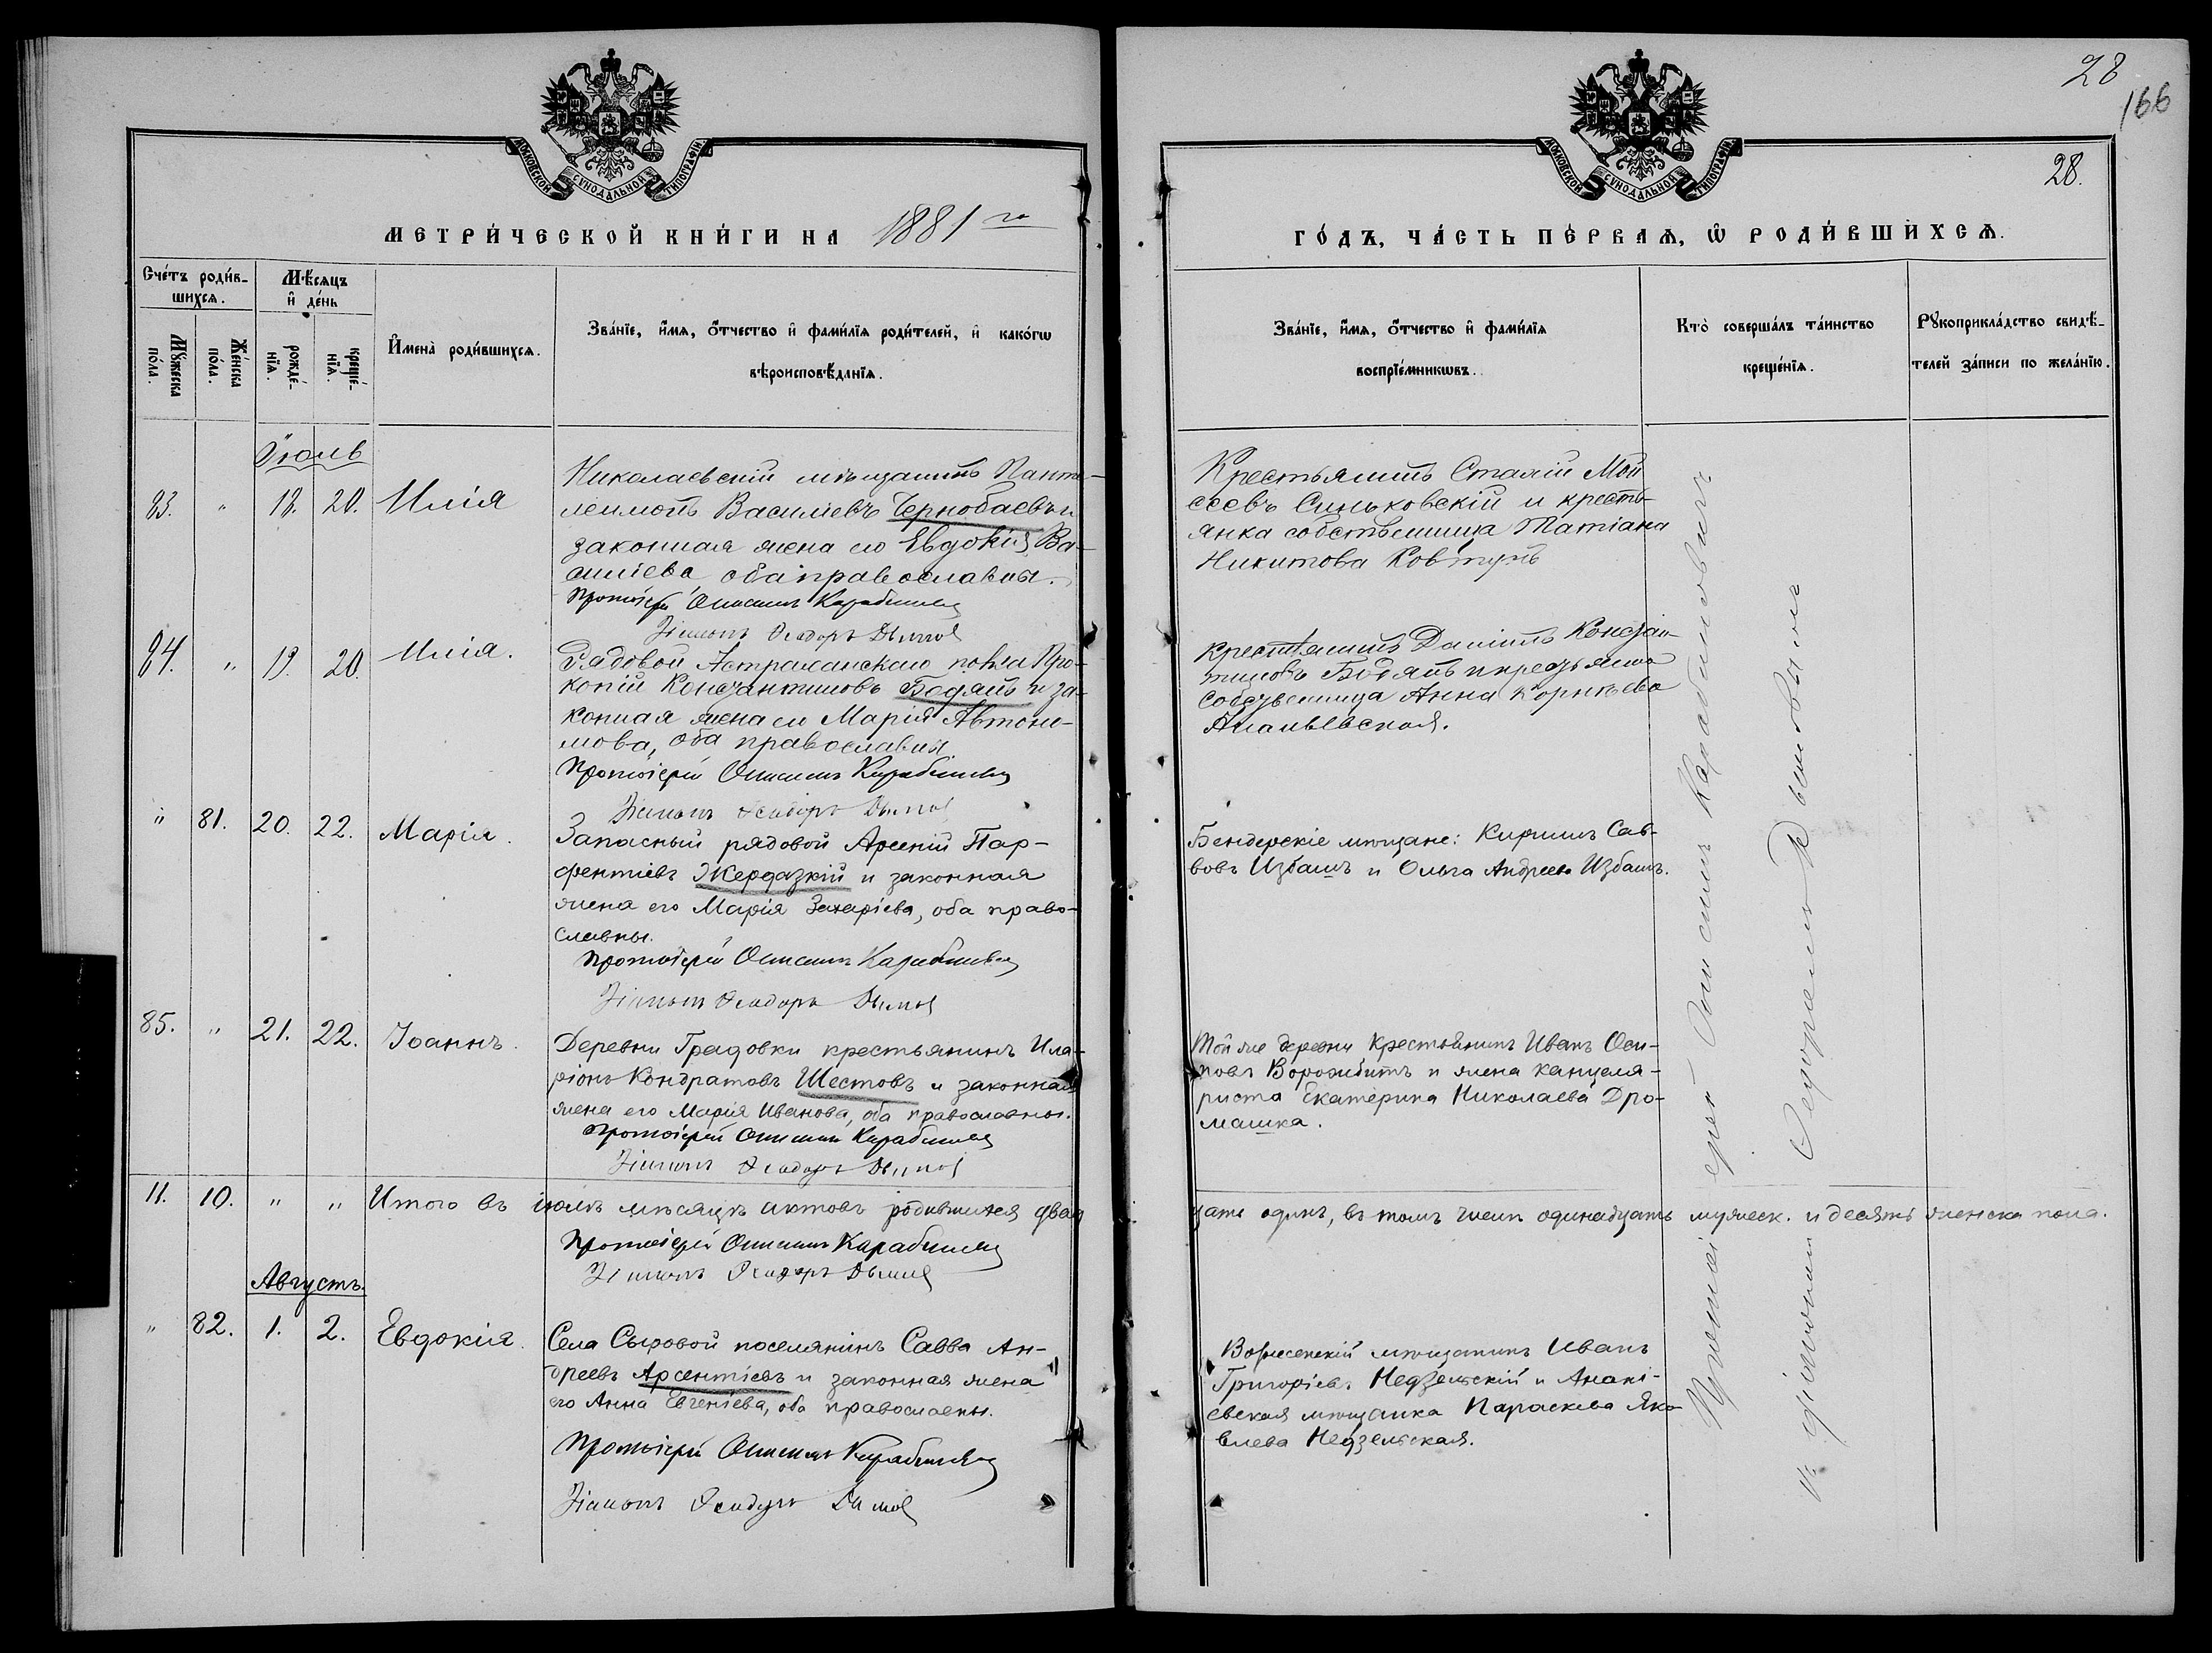 28
166
28.
МОСКОВСКОЙ СѴНОДАЛЬНОЙ ТИПОГРАФІИ
МОСКОВСКОЙ СѴНОДАЛЬНОЙ ТИПОГРАФІИ
МЕТРИ́ЧЕСКОЙ КНИ́ГИ НА 1881 го
ГО́ДЪ, ЧА́СТЬ ПЕ́РВАѦ, Ѿ РОДИ́ВШИХСѦ.
Сче́тъ роди́в-
шихсѧ.
Мꙋ́жеска по́ла.
Же́нска по́ла.
Мѣ́сѧцъ
и҆ де́нь
рожде́-
нїѧ.
креще́-
нїѧ.
И҆мена̀ роди́вшихсѧ.
Зва́нїе, и҆́мѧ, ѻ҆́тчество и҆ фами́лїѧ роди́телей, и҆ како́гѡ
вѣроисповѣ́данїѧ.
Зва́нїе, и҆́мѧ, ѻ҆́тчество и҆ фами́лїѧ
воспрїе́мникѡвъ.
Кто̀ соверша́лъ та́инство
креще́нїѧ.
Рꙋкоприкла́дство свидѣ́-
телей за́писи по жела́нїю.
Іюль
83. " 18. 20. Илія
Николаевскій мѣщанинъ Панте-
леимонъ Василіевъ Чернобаевъ и
законная жена его Евдокія Ва-
силіева, оба православны.
Протоіерей Онисимъ Карабиневъ
Діаконъ Ѳеодоръ Дымов
Крестьянинъ Стахій Мои
сеевъ Синьковскій и кресть-
янка собственница Татіана
Никитова Ковтунъ
84. " 19. 20. Илія.
Рядовой Астраханскаго полка Про-
копій Константиновъ Бодянъ и за-
конная жена его Марія Автоно-
мова, оба православны.
Протоіерей Онисимъ Карабиневъ
Діаконъ Ѳеодоръ Дымов
Крестьянинъ Даніилъ Констан-
тиновъ Бодянъ и крестьянка
собственница Анна Корнѣева
Ананьевская.
" 81. 20. 22. Марія.
Запасный рядовой Арсеній Пар-
фентіевъ Жердазкій и законная
жена его Марія Захаріева, оба право-
славны.
Протоіерей Онисимъ Карабиневъ
Діаконъ Ѳеодоръ Дымов
Бендерскіе мѣщане: Кириллъ Сав-
вовъ Избашъ и Ольга Андреева Избашъ.
85. " 21. 22. Іоаннъ.
Деревни Градовки крестьянинъ Ила-
ріонъ Кондратовъ Шестовъ и законная
жена его Марія Иванова, оба православны.
Протоіерей Онисимъ Карабиневъ
Діаконъ Ѳеодоръ Дымов
Той же деревни крестьянинъ Иванъ Оси-
повъ Ворожбитъ и жена канцеля-
риста Екатерина Николаева Дро-
машка.
11. 10. " " Итого въ іюлѣ мѣсяцѣ актовъ родившихся двад
цать одинъ, въ томъ числѣ одинадцать мужеск. и десять женска пола.
Протоіерей Онисимъ Карабиневъ
Діаконъ Ѳеодоръ Дымов
Августъ.
" 82. 1. 2. Евдокія.
Села Сыровой поселянинъ Савва Ан-
дреевъ Арсентіевъ и законная жена
его Анна Евгеніева, оба православны.
Протоіерей Онисимъ Карабиневъ
Діаконъ Ѳеодоръ Дымов
Вознесенскій мѣщанинъ Иванъ
Григоріевъ Недзельскій и Анані-
евская мѣщанка Параскева Яко-
влева Недзельская.
Протоіерей Онисимъ Карабиновичъ
съ діакономъ Ѳеодоромъ Дымовымъ